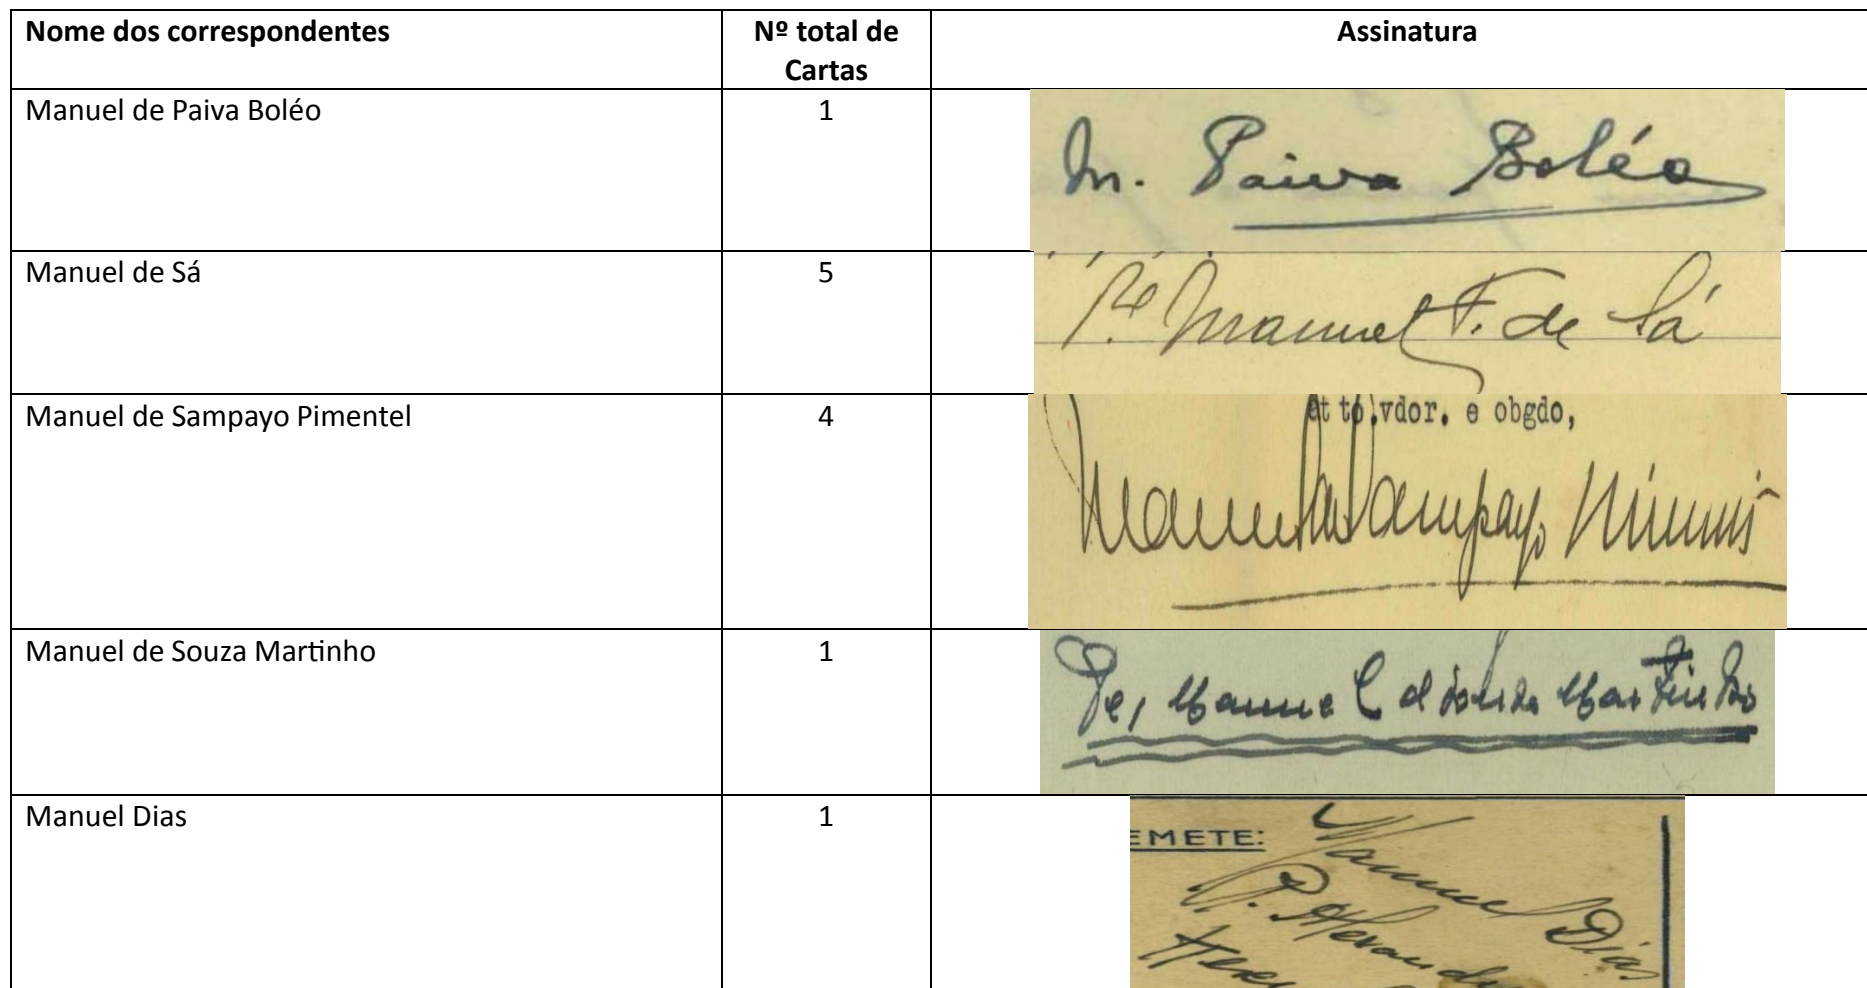 Nome dos correspondentes
Nº total de Cartas
Assinatura
Manuel de Paiva Boléo
1
M. Paiva Boléo
Manuel de Sá
5
Pe Manuel F. de Sá
Manuel de Sampayo Pimentel
4
at to.vdor. e obgdo,
Manuel de Sampayo
Manuel de Souza Martinho
1
Pe, Manuel de Souza Martinho
Manuel Dias
1
EMETE:
Manuel Dias
P. Alexandre